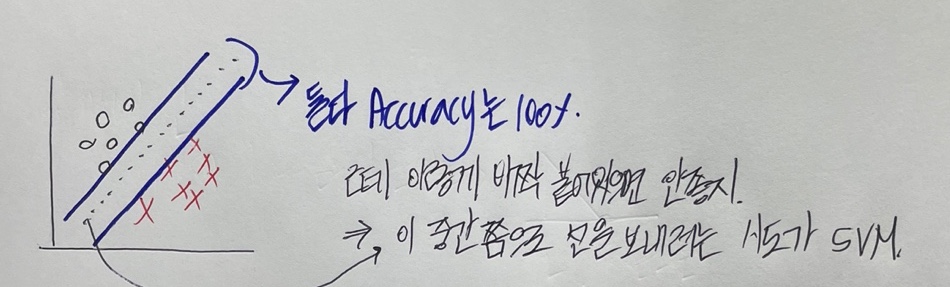 둘다 Accuracy는 100%.
근데 이렇게 바짝 붙어있으면 안좋지.
⇒ 이 중간쯤으로 선을 보내려는 시도가 SVM.